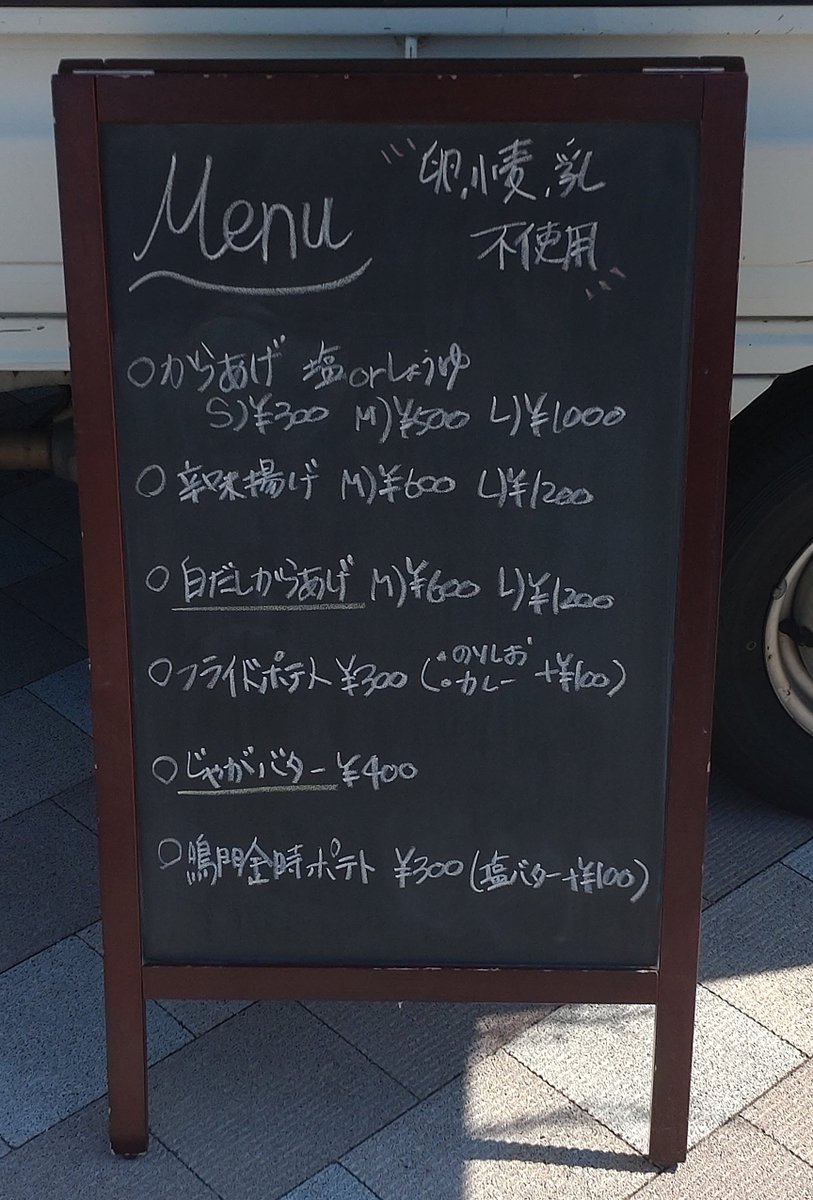 Menu
卵、小麦、乳
不使用
○からあげ 塩orしょうゆ
S)¥300 M)¥500 L)¥1000
○辛味揚げ M)¥600 L)¥1200
○白だしからあげ M)¥600 L)¥1200
○フライドポテト ¥300 (・のりしお ・カレー +¥100)
○じゃがバター ¥400
○鳴門金時ポテト ¥300 (塩バター+¥100)